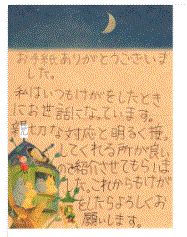 お手紙ありがとうございま
した。
私はいつもけがをしたとき
にお世話になっています。
親切な対応と明るく接
してくれる所が良い
ので紹介させてもらいまし
た。これからもけが
をしたらよろしくお
願いします。